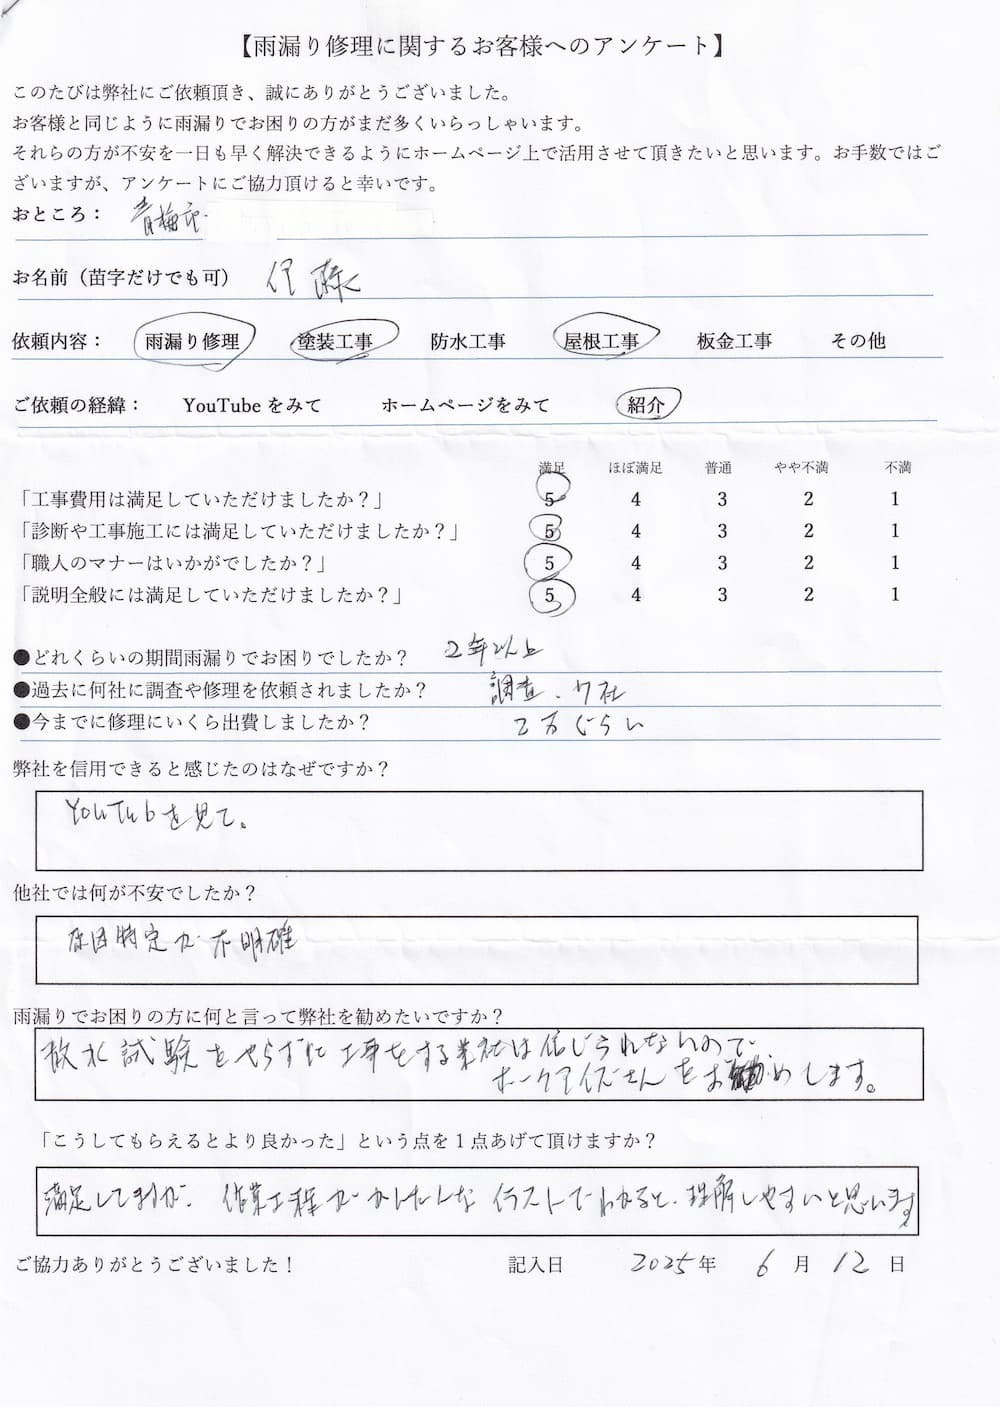 【雨漏り修理に関するお客様へのアンケート】
このたびは弊社にご依頼頂き、誠にありがとうございました。
お客様と同じように雨漏りでお困りの方がまだ多くいらっしゃいます。
それらの方が不安を一日も早く解決できるようにホームページ上で活用させて頂きたいと思います。お手数ではご
ざいますが、アンケートにご協力頂けると幸いです。
おところ： 青梅市
お名前（苗字だけでも可） 伊藤
依頼内容： 雨漏り修理 塗装工事 防水工事 屋根工事 板金工事 その他
ご依頼の経緯： YouTubeをみて ホームページをみて 紹介
満足 ほぼ満足 普通 やや不満 不満
「工事費用は満足していただけましたか？」 5 4 3 2 1
「診断や工事施工には満足していただけましたか？」 5 4 3 2 1
「職人のマナーはいかがでしたか？」 5 4 3 2 1
「説明全般には満足していただけましたか？」 5 4 3 2 1
●どれくらいの期間雨漏りでお困りでしたか？ 2年以上
●過去に何社に調査や修理を依頼されましたか？ 調査、7社
●今までに修理にいくら出費しましたか？ 2万ぐらい
弊社を信用できると感じたのはなぜですか？
YouTubを見て。
他社では何が不安でしたか？
原因特定が不明確
雨漏りでお困りの方に何と言って弊社を勧めたいですか？
散水試験をやらずに工事をする業社は信じられないので
ホークアイズさんをお勧めします。
「こうしてもらえるとより良かった」という点を1点あげて頂けますか？
満足してますが、作業工程がかんたんなイラストでわかると、理解しやすいと思います
ご協力ありがとうございました！ 記入日 2025年 6月 12日